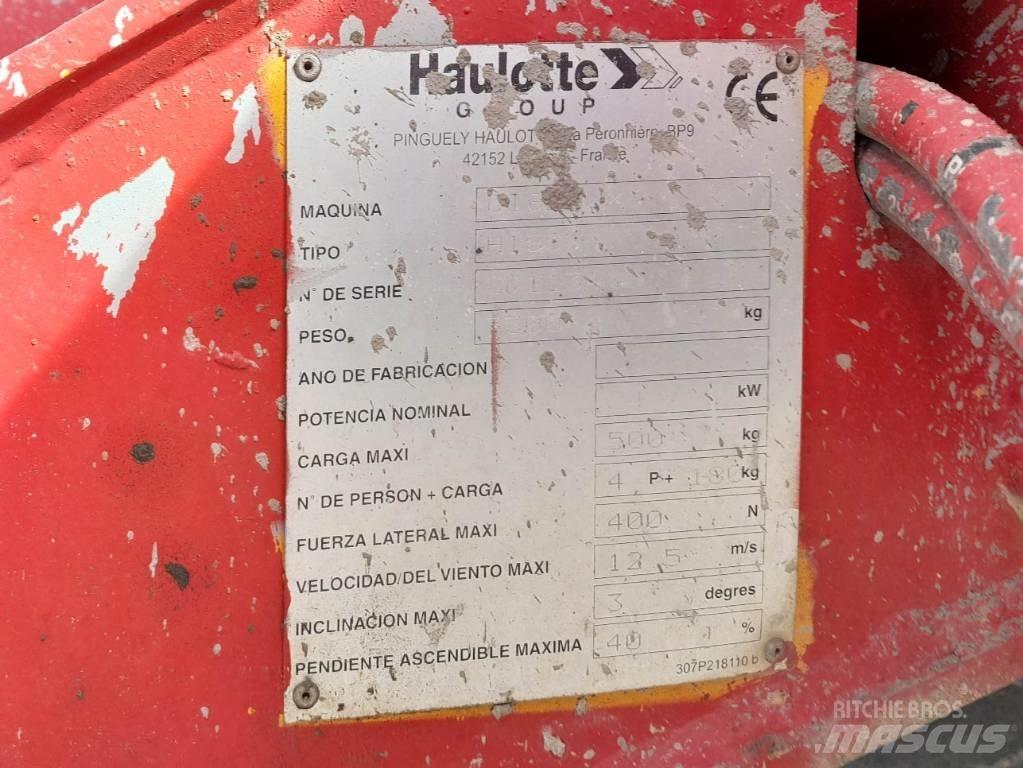 Haulotte
GROUP
CE
PINGUELY HAULOT Peronniere BP9
42152 France
MAQUINA
TIPO
N° DE SERIE
PESO kg
ANO DE FABRICACION
POTENCIA NOMINAL kW
CARGA MAXI 500 kg
N° DE PERSON + CARGA 4 P + 180 kg
FUERZA LATERAL MAXI 400 N
VELOCIDAD/DEL VIENTO MAXI 12,5 m/s
INCLINACION MAXI 3 degres
PENDIENTE ASCENDIBLE MAXIMA 40 %
307P218110 b
RITCHIE BROS.
MASCUS